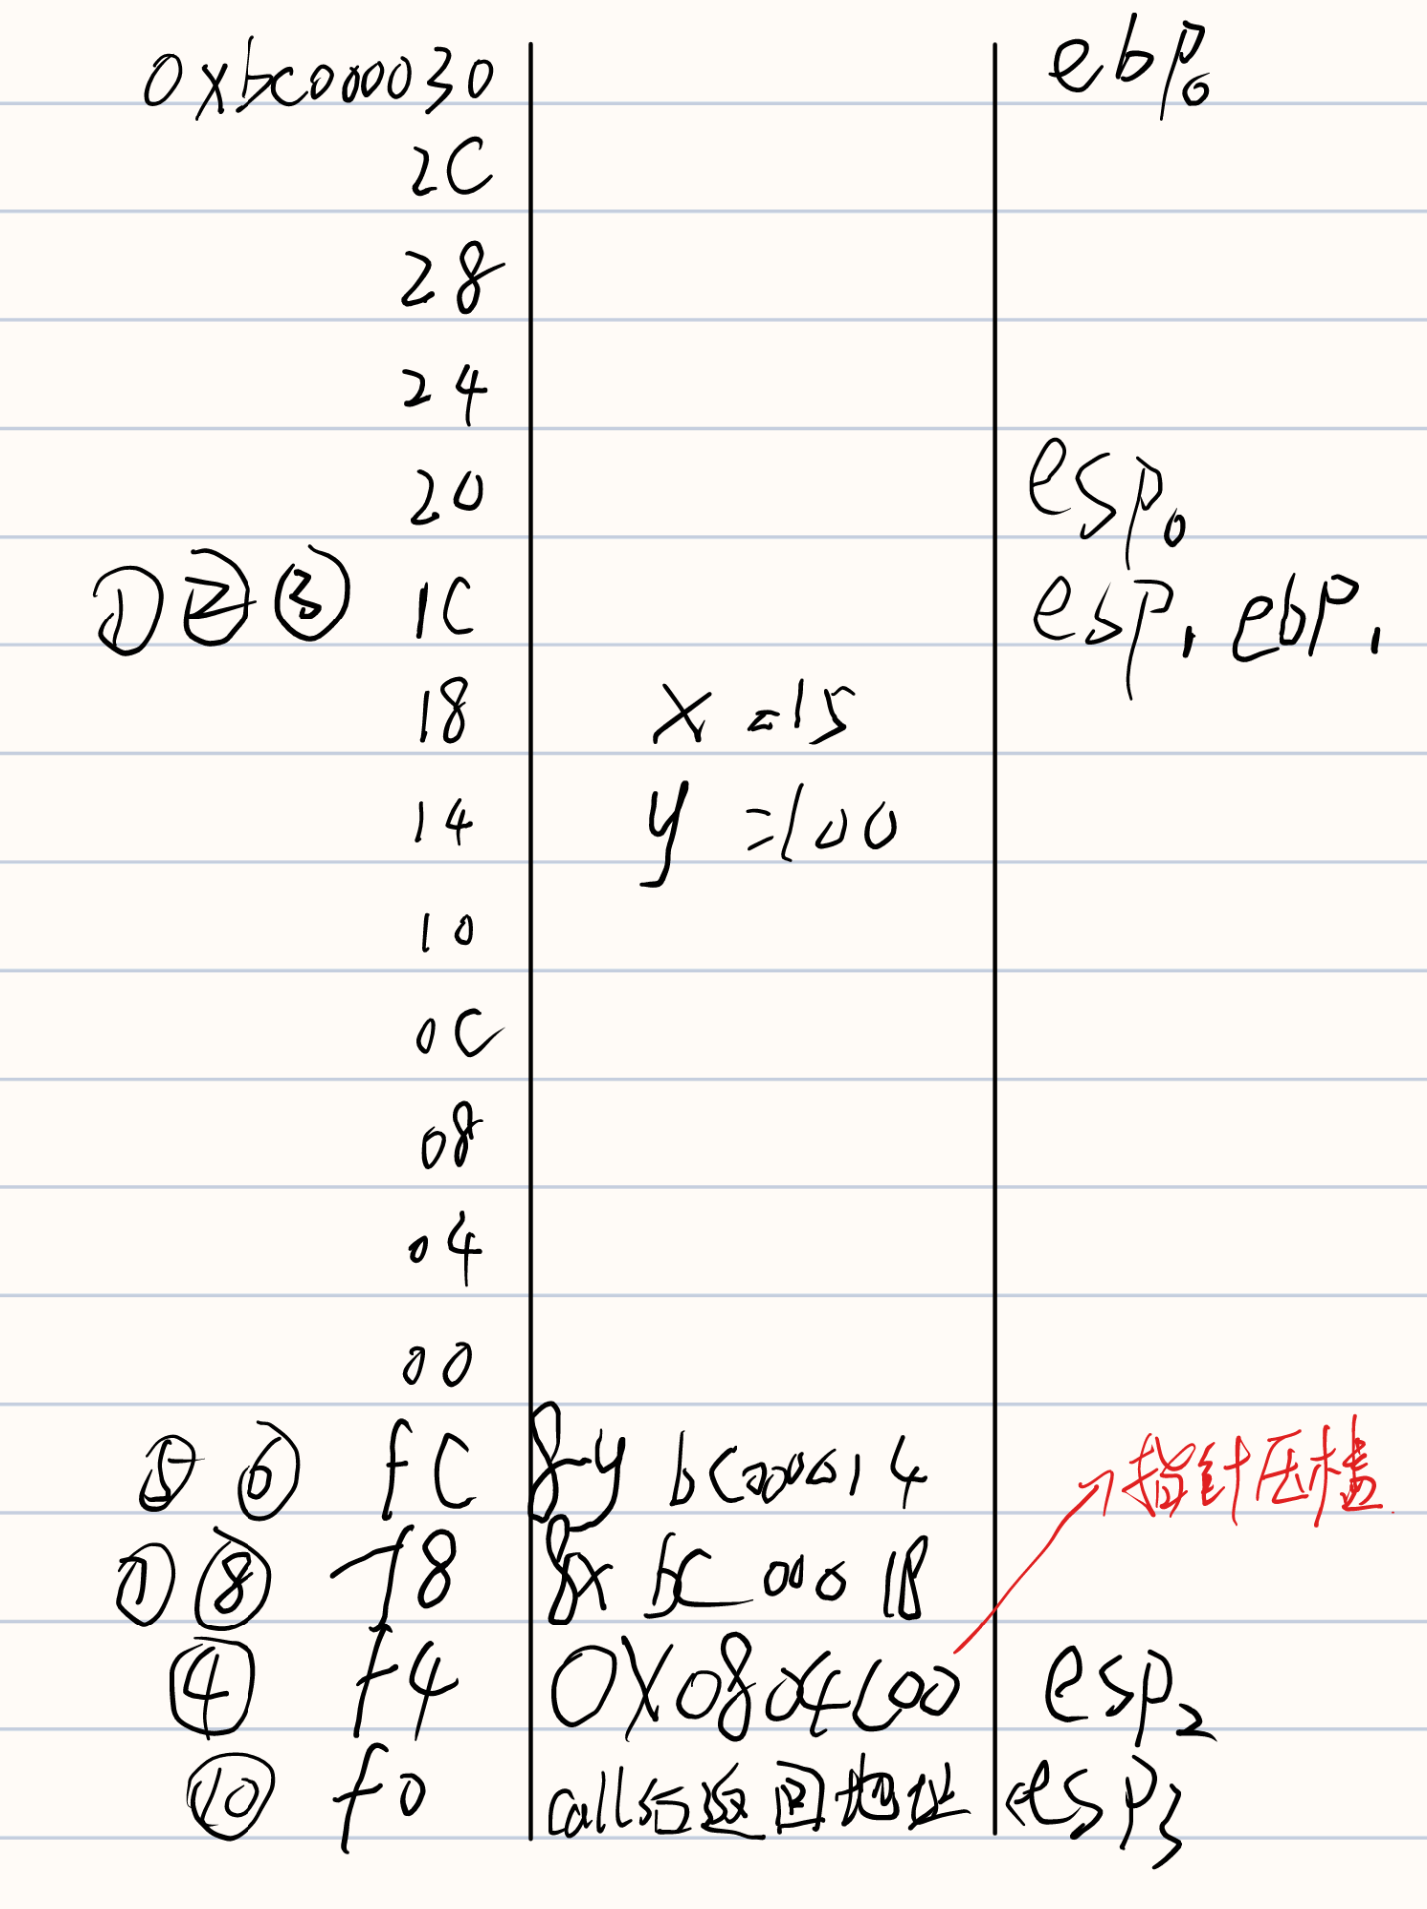 0xbc000030 ebp0
2C
28
24
20 esp0
① ② ③ 1C esp1 ebp1
18 x=15
14 y=100
10
0C
08
04
00
⑤ ⑥ fC &y bc000014
⑦ ⑧ f8 &x bC000018
指针压栈
④ f4 0X0804C00 esp2
⑩ f0 call后返回地址 esp3